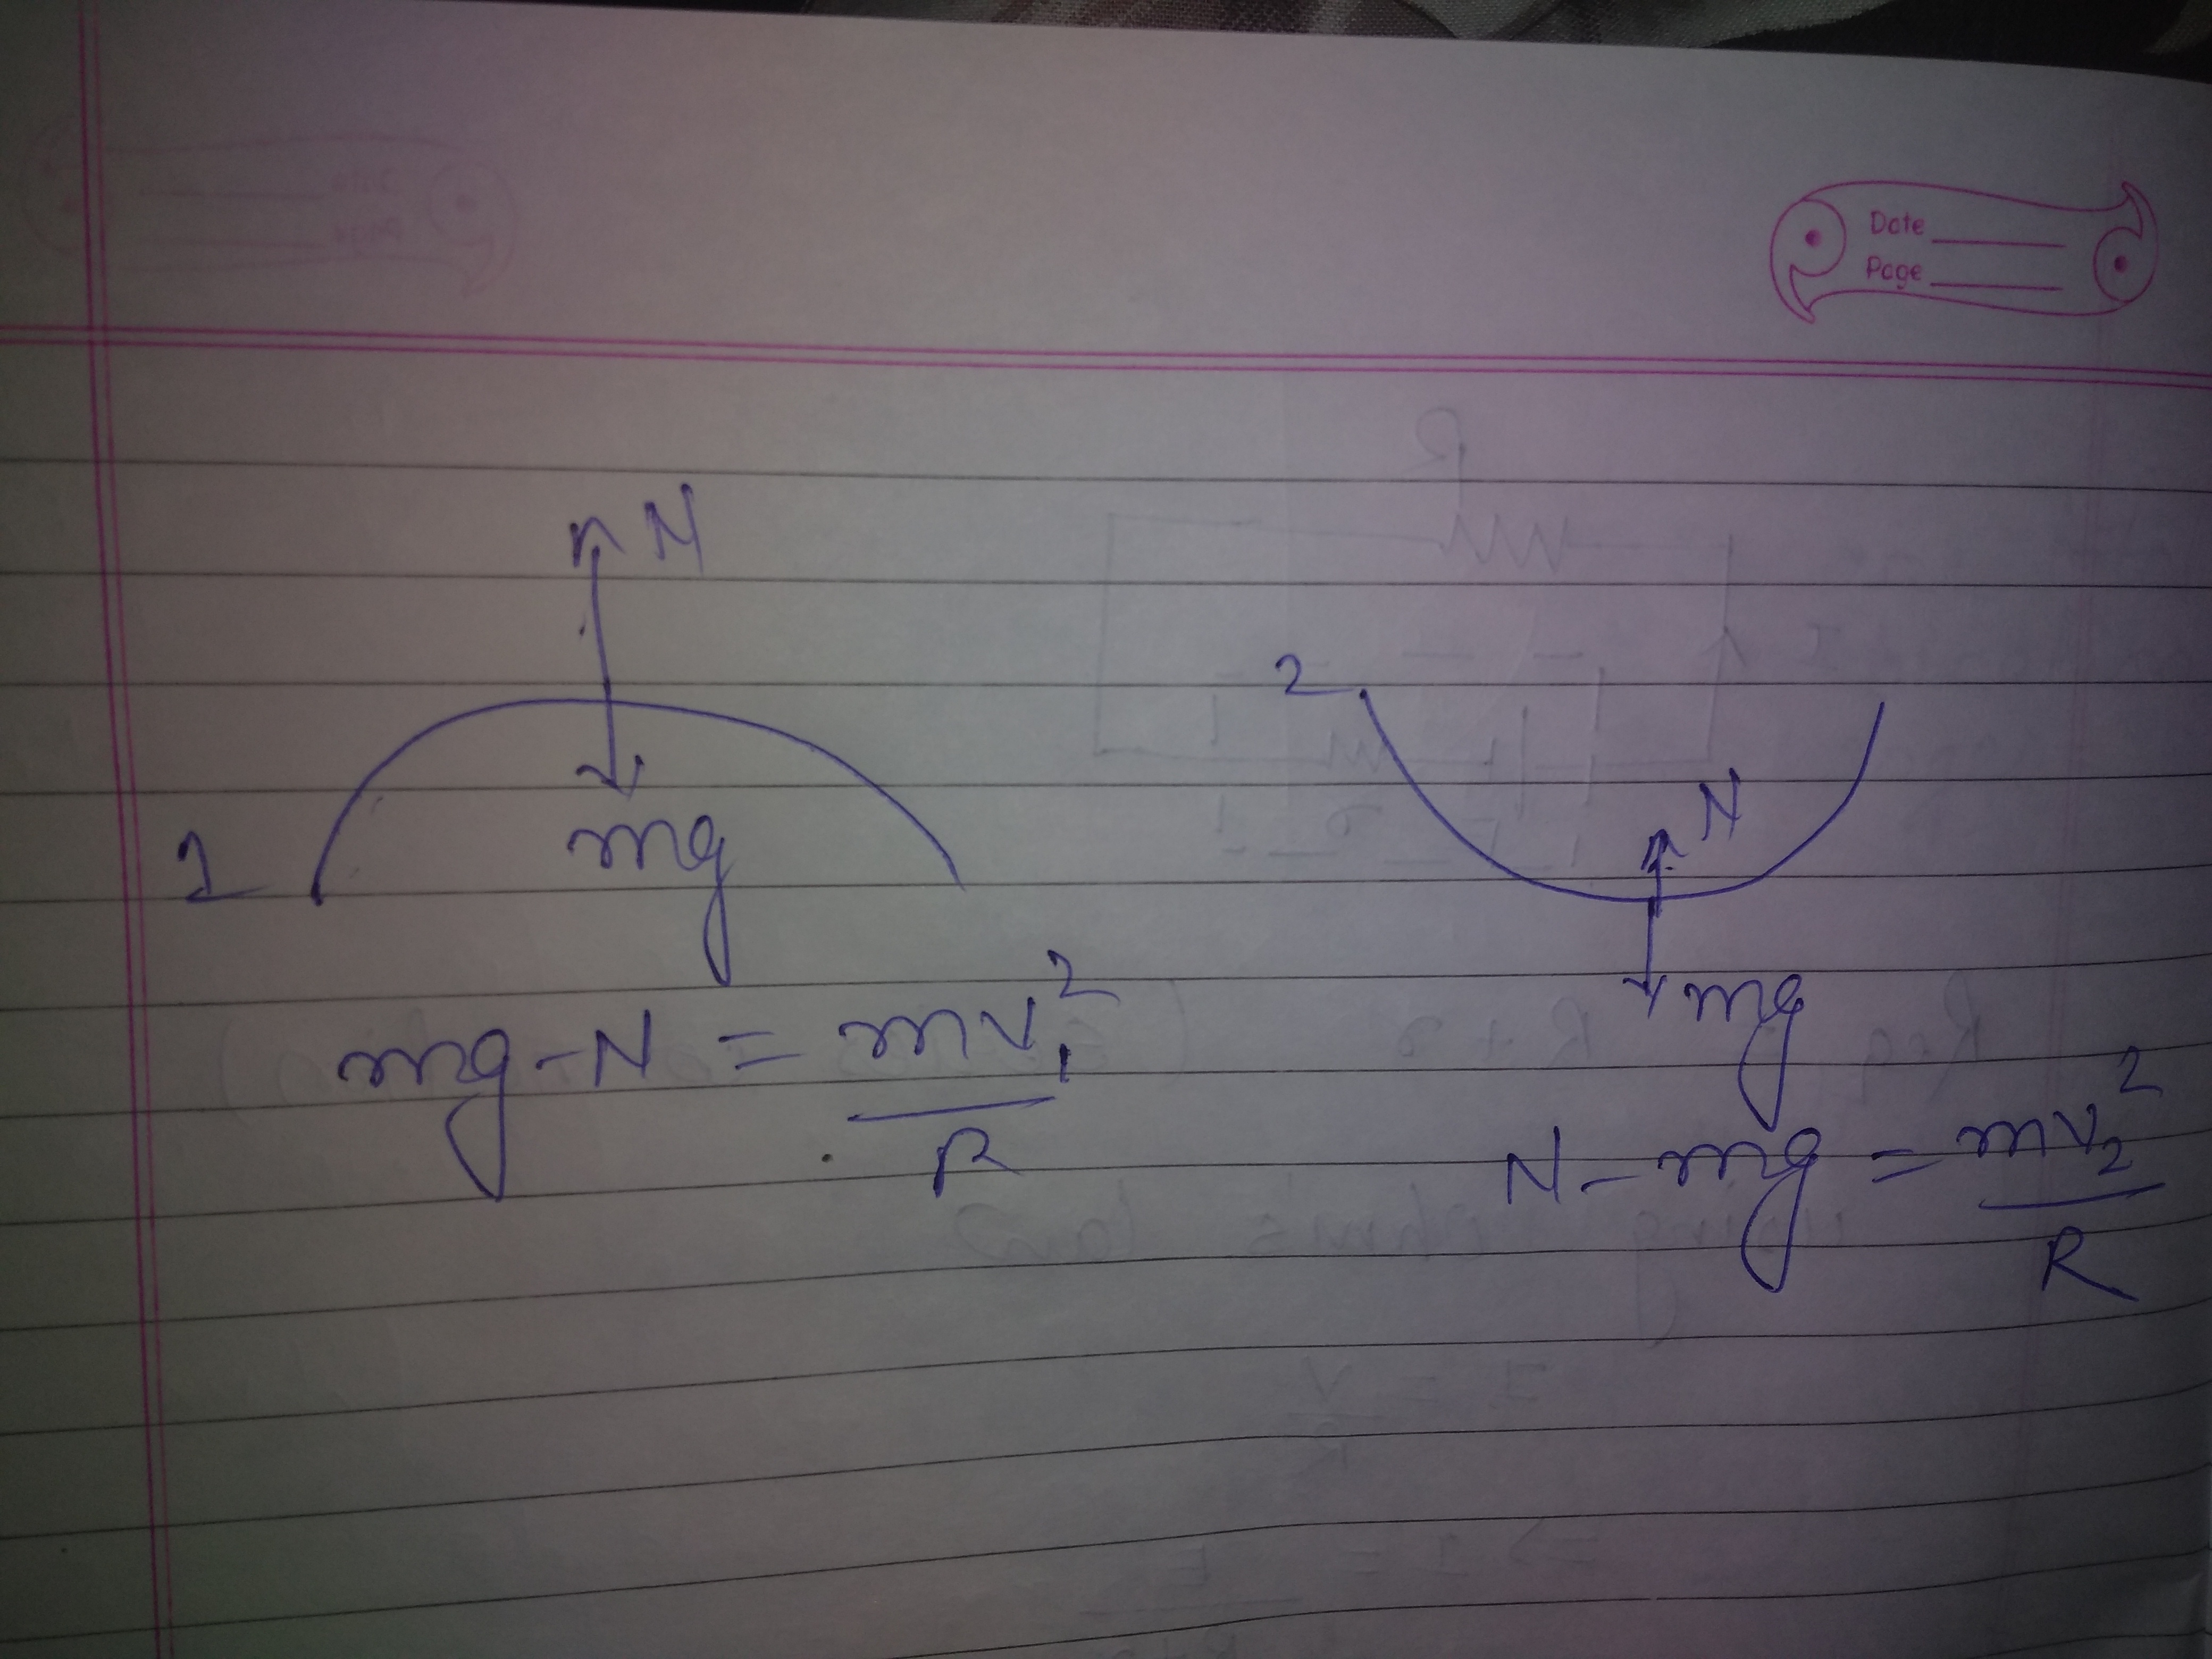 Date
Page
N
mg
1
mg - N = mv₁²/R
2
N
mg
N - mg = mv₂²/R